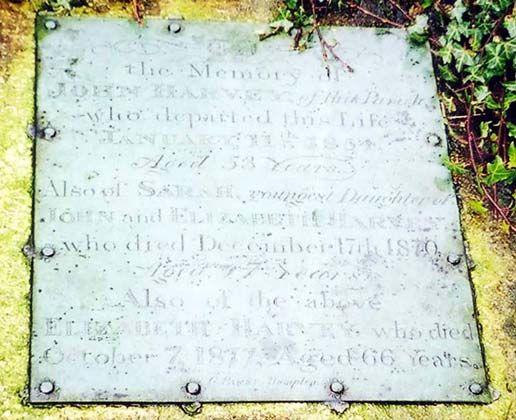 the Memory of
JOHN HARVEY, of this Parish,
who departed this Life
JANUARY 11th
Aged 53 Years.
Also of SARAH, youngest Daughter of
JOHN and ELIZABETH HARVEY,
who died December 17th 1870,
Aged 17 Years.
Also of the above
ELIZABETH HARVEY who died
October 7, 1877, Aged 66 Years.